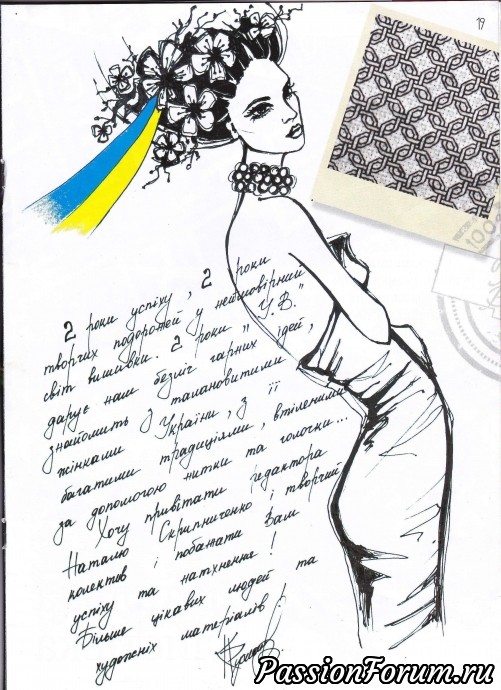 19
2 роки успіху, 2 роки
творчих подорожей у неймовірний
світ вишивки. 2 роки "У.В."
дарує нам безліч гарних ідей,
знайомить з талановитими
жінками України, з її
багатими традиціями, втіленими
за допомогою нитки та голочки...
Хочу привітати редактора
Наталю Скрипниченко і творчий
колектив і побажати Вам
успіху та натхнення!
Більше цікавих людей та
художніх матеріалів!
100
PassionForum.ru